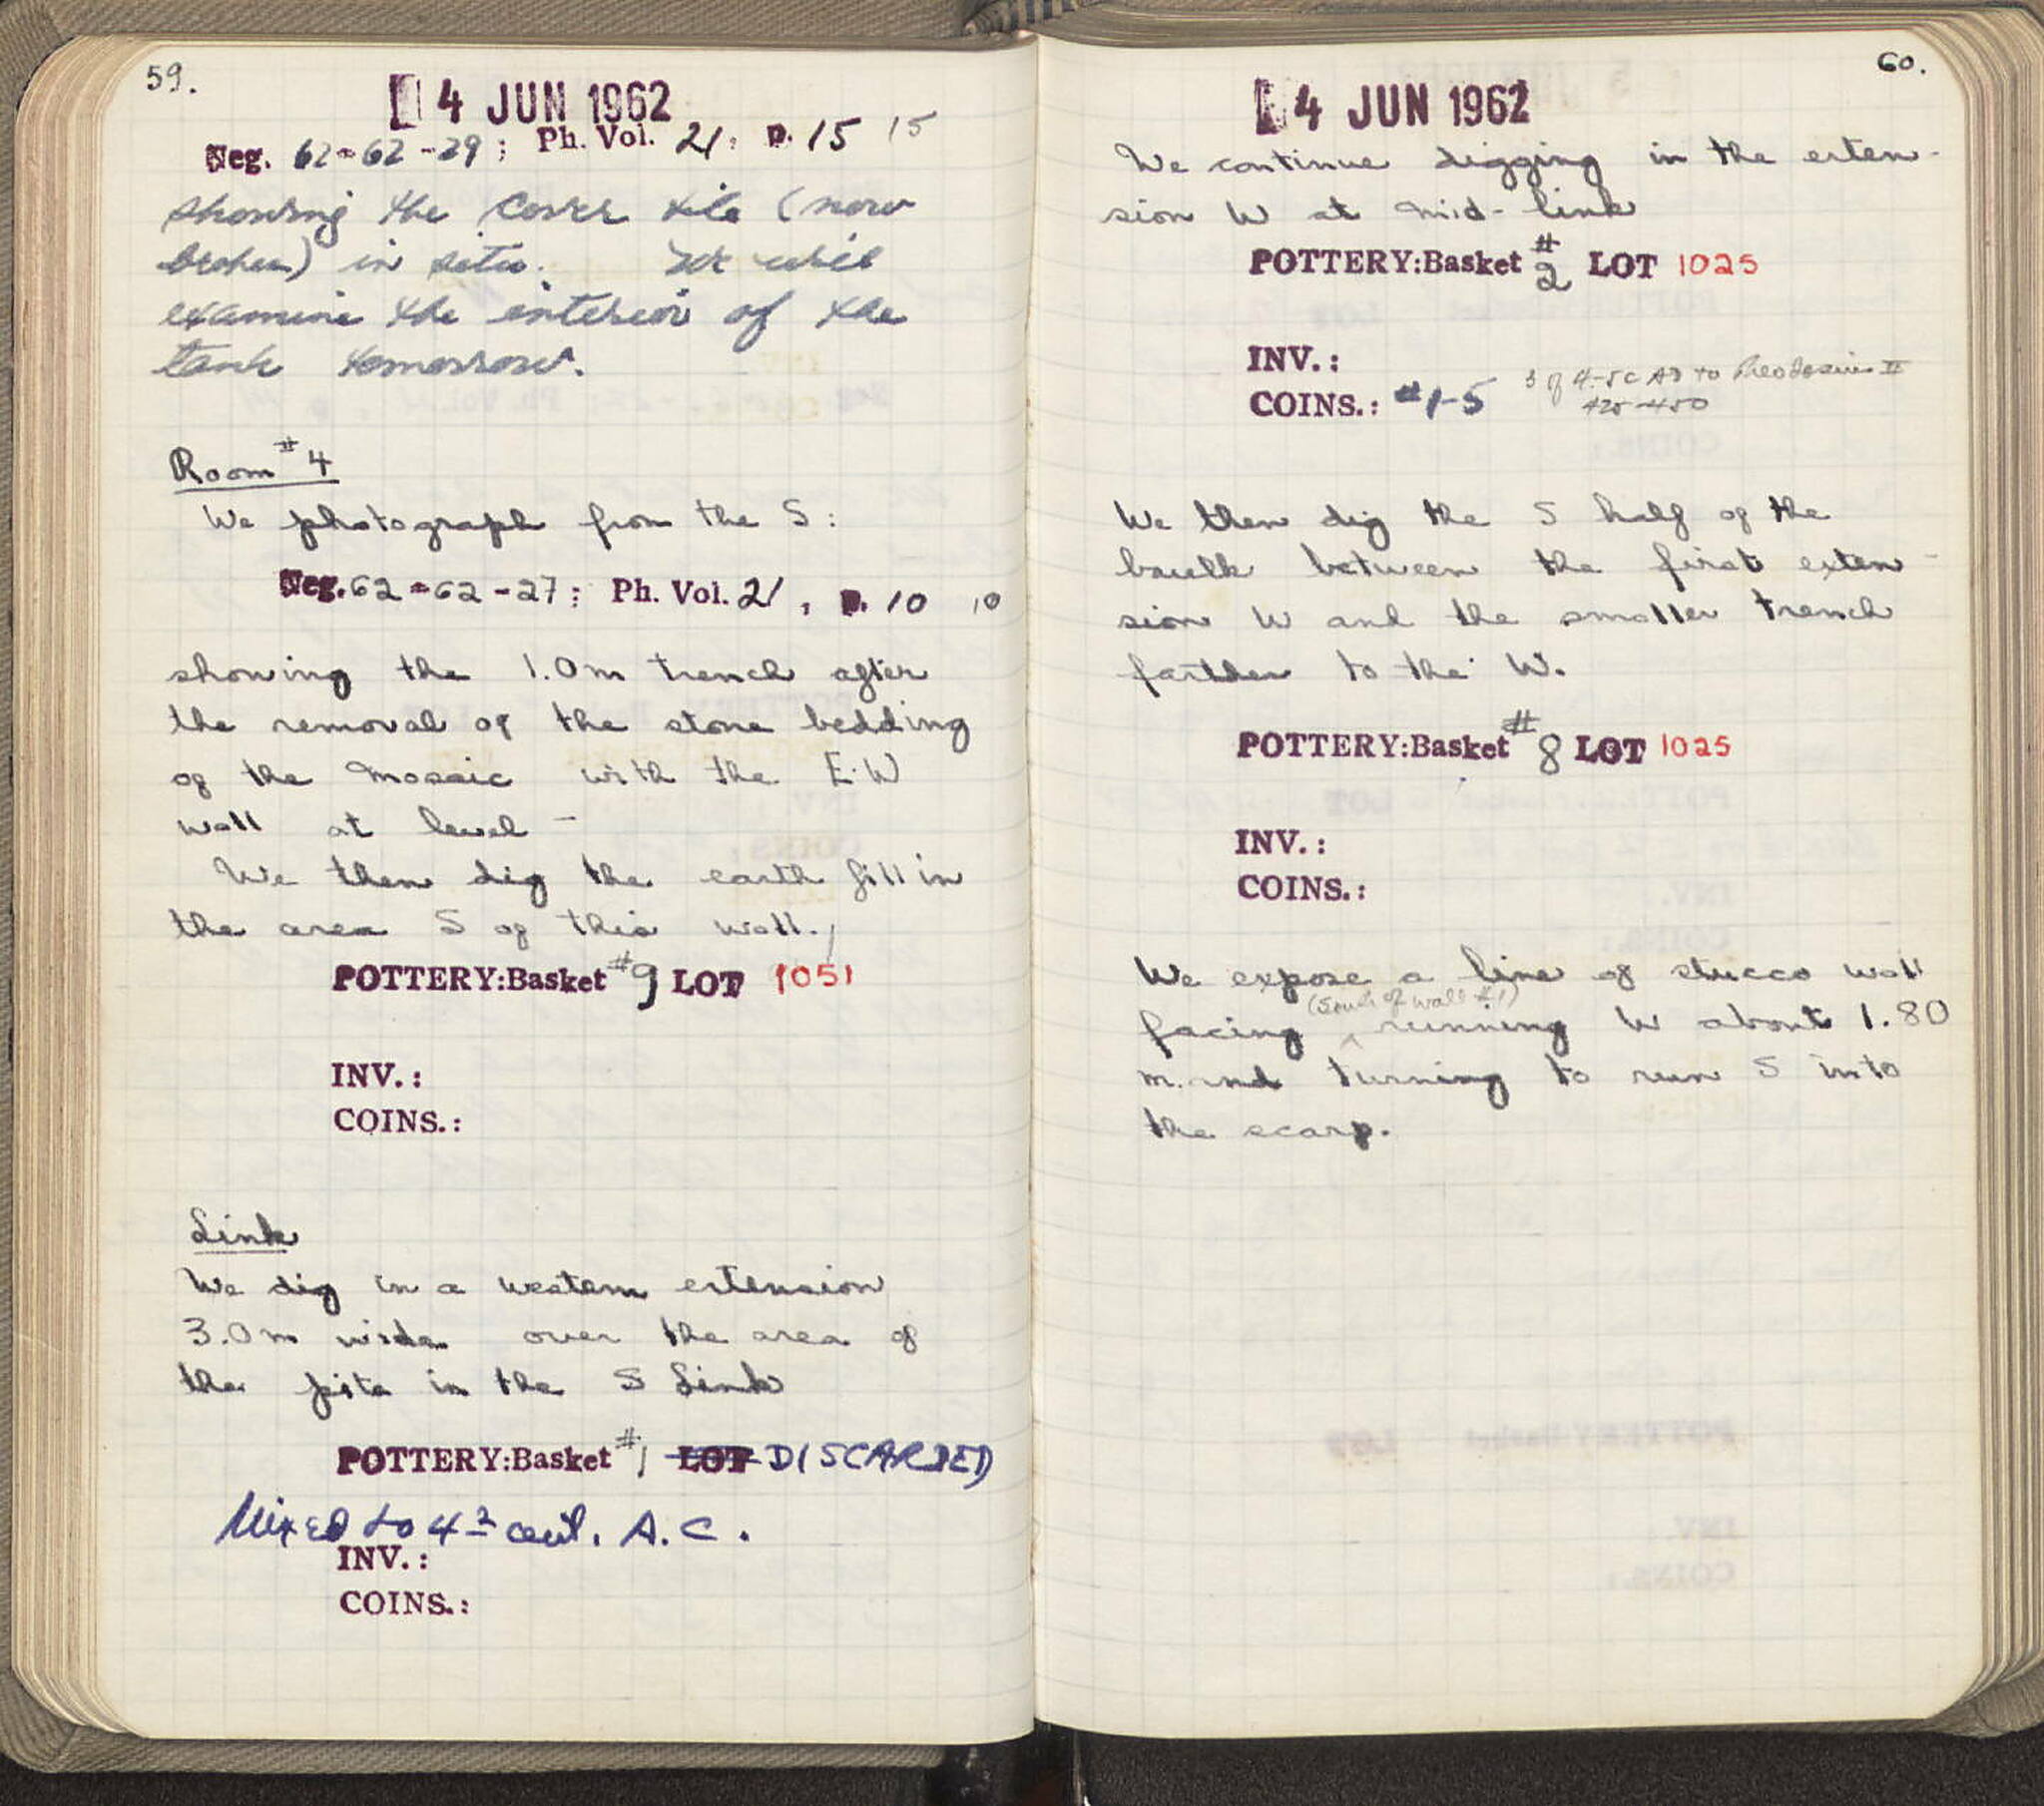 59.
4 JUN 1962
Neg. 62-62-29; Ph. Vol. 21, p. 15 15
showing the cover tile (now
broken) in situ. We will
examine the interior of the
tank tomorrow.
Room #4
We photograph from the S:
Neg. 62-62-27; Ph. Vol. 21, p. 10 10
showing the 1.0m trench after
the removal of the stone bedding
of the mosaic with the E-W
wall at level -
We then dig the earth fill in
the area S of this wall.
POTTERY:Basket #9 LOT 1051
INV.:
COINS.:
Link
We dig in a western extension
3.0m wide over the area of
the pits in the S Link
POTTERY:Basket #1 LOT DISCARDED
Mixed to 4th cent. A.C.
INV.:
COINS.:
60.
4 JUN 1962
We continue digging in the exten-
sion W at mid-link
POTTERY:Basket #2 LOT 1025
INV.:
COINS.: #1-5 3 of 4-5C AD to Theodosius II
425-450
We then dig the S half of the
baulk between the first exten-
sion W and the smaller trench
farther to the W.
POTTERY:Basket #8 LOT 1025
INV.:
COINS.:
We expose a line of stucco wall
(South of wall #1)
facing ^ running W about 1.80
m. and turning to run S into
the scarp.